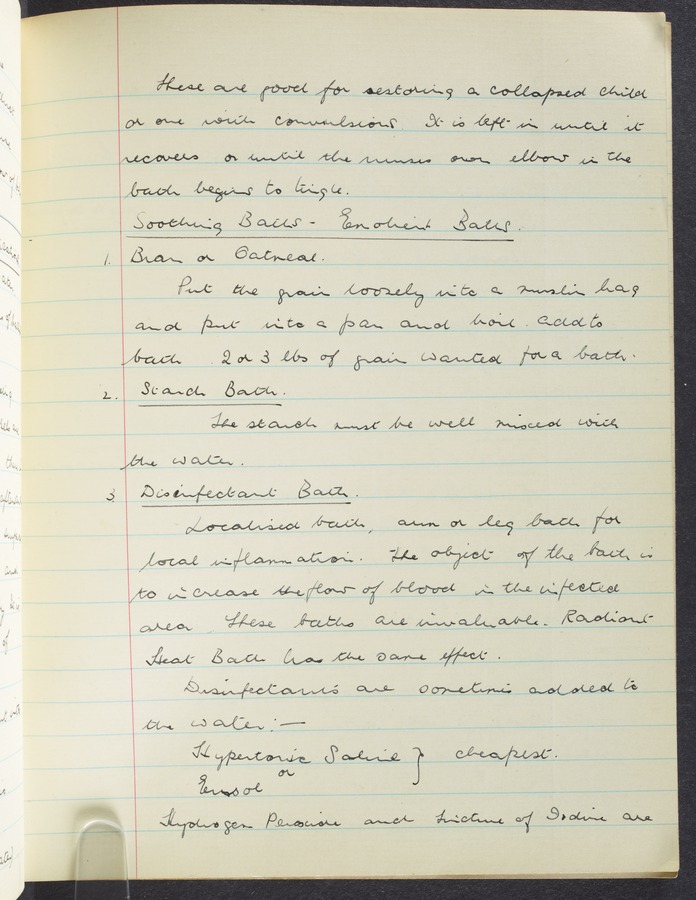 These are good for restoring a collapsed child
or one with convulsions. It is left in until it
recovers or until the nurses own elbow in the
bath begins to tingle.
Soothing Baths - Emolient Baths.
1. Bran or Oatmeal.
Put the grain loosely into a muslin bag
and put into a pan and boil. add to
bath. 2 or 3 lbs of grain wanted for a bath.
2. Starch Bath.
The starch must be well mixed with
the water.
3. Disinfectant Bath.
Localised bath, arm or leg bath for
local inflammation. The object of the bath is
to increase the flow of blood in the infected
area. These baths are invaluable. Radiant
Heat Bath has the same effect.
Disinfectants are sometimes added to
the water:—
Hypertonic Saline } cheapest.
or
Eusol
Hydrogen Peroxide and tincture of Iodine are